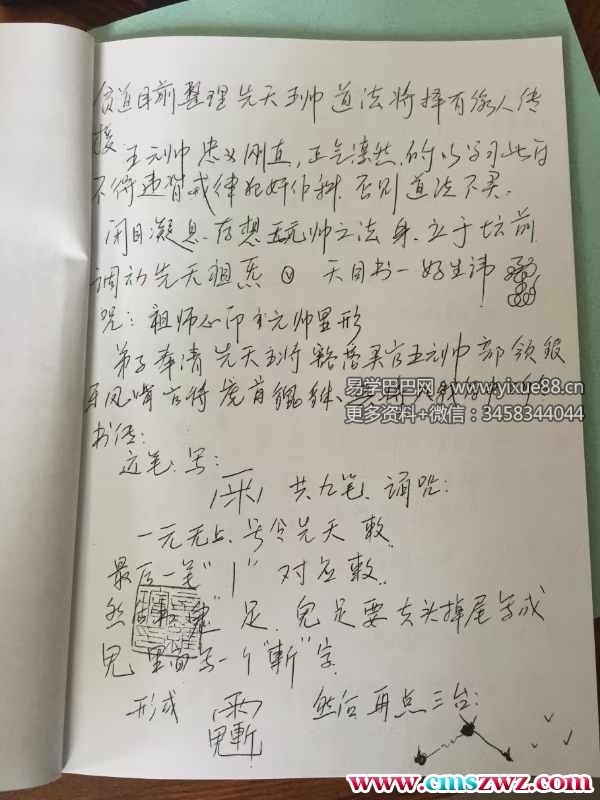 貧道目前整理先天王帅道法将择有缘人传
授
王元帅忠义刚直,正气凛然,的以学习此官
不得违背戒律犯奸作科,否则道法不灵。
闭目凝息,存想王元帅之法身,立于坛前
调动先天祖炁 天目书一好生讳
咒:祖师心印 王元帅显形
弟子奉请先天主将 豁落灵官王元帅 部领银
牙风嘴 将虎首
书传:
边笔:写:
共九笔、诵咒:
一元无上、号令先天敕
最后一笔“丨”对应敕
然后 足,鬼足要去头掉尾写成
鬼里面写一个“斬”字
形成 然后再点三台:
易学巴巴网:www.yixue88.cn
更多资料+微信:3458344044
www.cmszwz.com